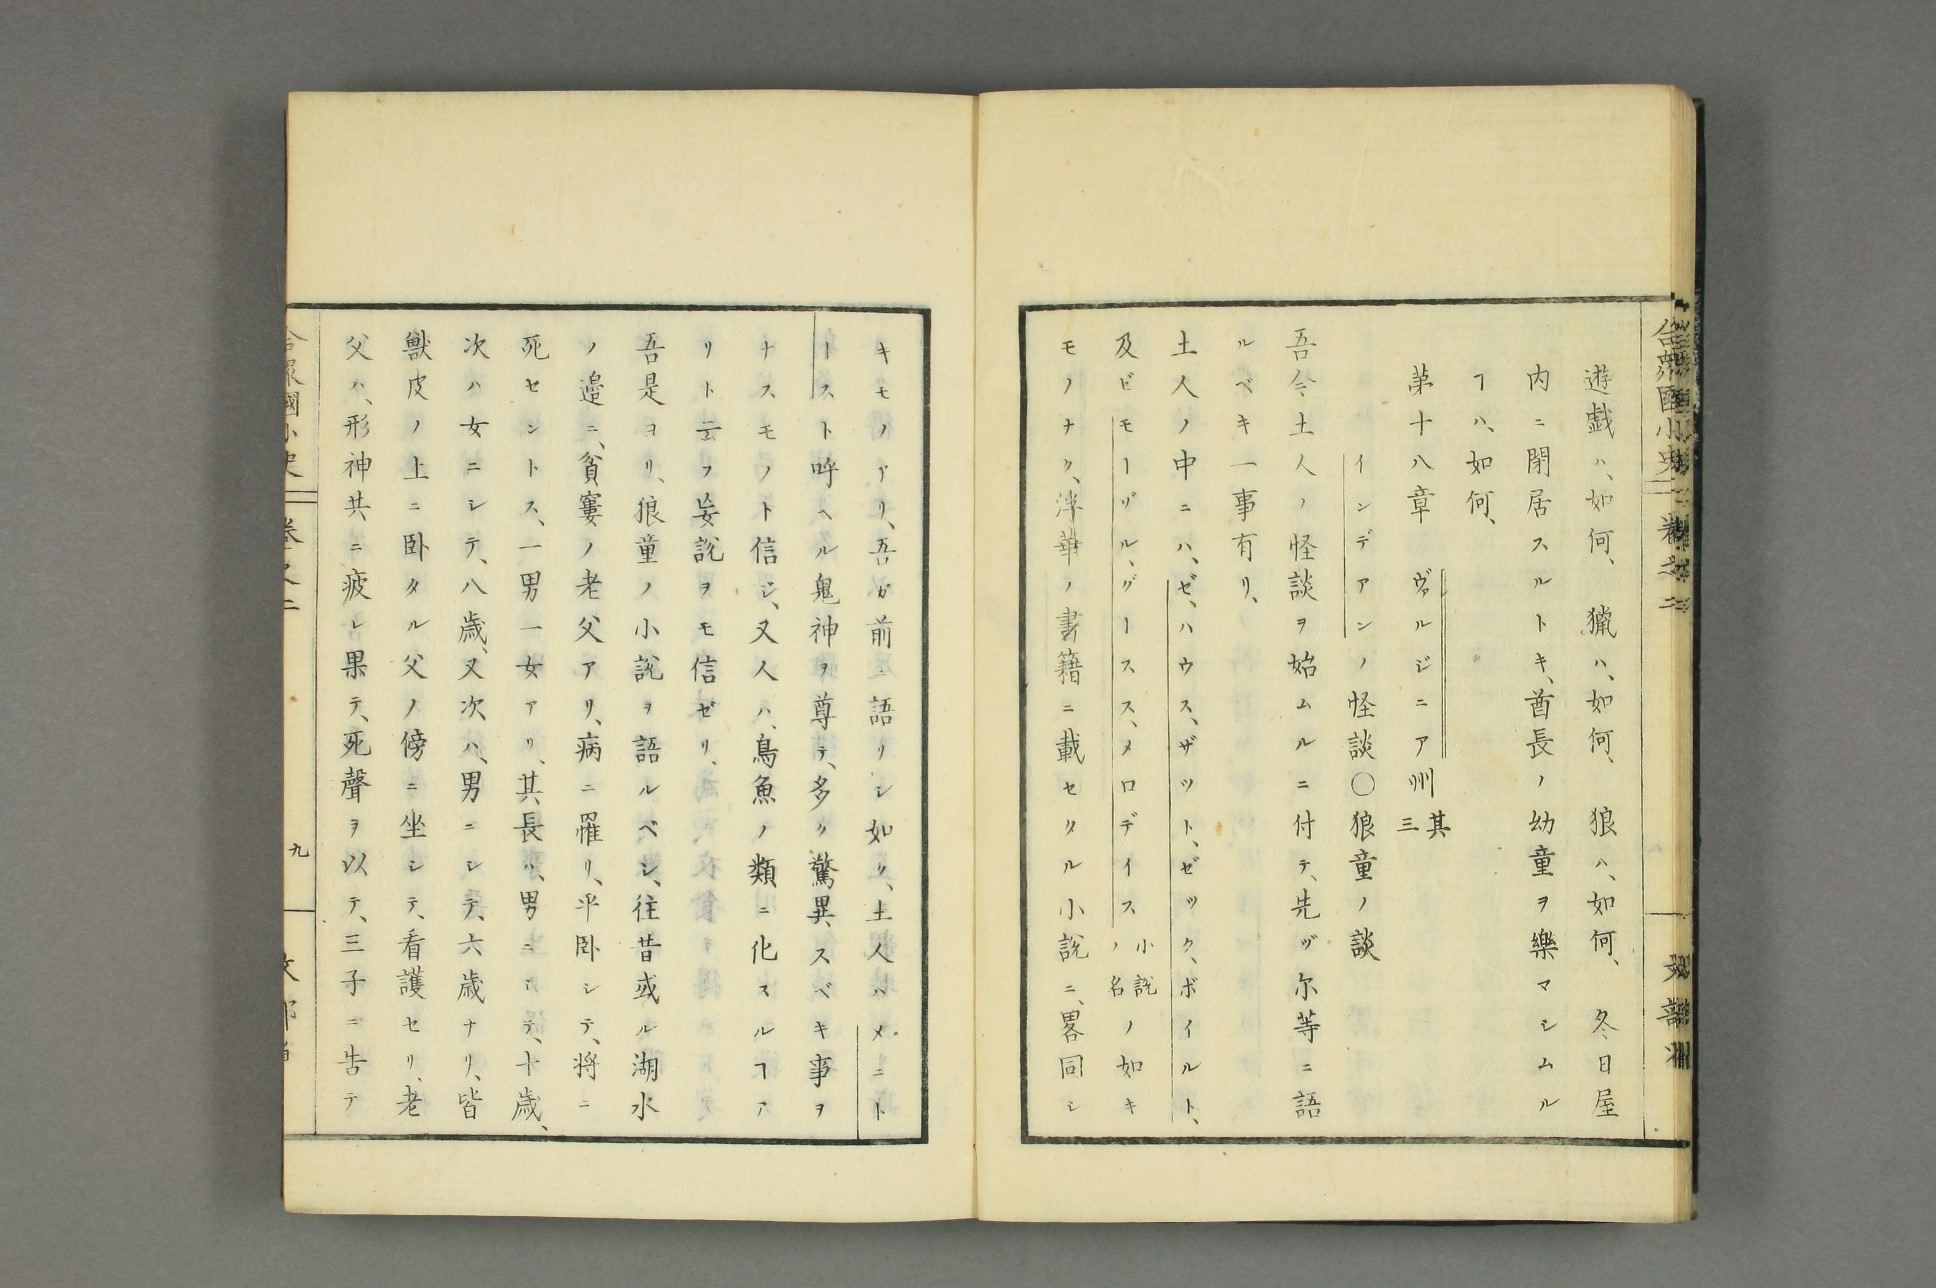 遊戯ハ、如何、 猟ハ、如何、 狼ハ、如何、 冬日屋
内ニ閉居スルトキ、酋長ノ幼童ヲ樂マシムル
ヿハ、如何、
苐十八章 ヴァルジニア州 其三
インデアンノ怪談〇狼童ノ談
吾今土人ノ怪談ヲ始ムルニ付テ、先ヅ尓等ニ語
ルベキ一事有リ、
土人ノ中ニハ、ゼ、ハウス、ザツト、ゼツク、ボイルト、
及ビモーゾル、グースス、メロデイス小説ノ名ノ如キ
モノナク、浮華ノ書籍ニ載セタル小説ニ、畧同シ
キモノアリ、吾ガ前ニ語リシ如ク、土人ハメニト
ースト呼ヘル鬼神ヲ尊テ、多ク驚異スベキ事ヲ
ナスモノト信ジ、又人ハ、鳥魚ノ類ニ化スルヿア
リト云フ妄説ヲモ信ゼリ、
吾是ヨリ、狼童ノ小説ヲ語ルベシ、往昔或ル湖水
ノ邉ニ、貧窶ノ老父アリ、病ニ罹リ、平卧シテ、将ニ
死セントス、一男一女アリ、其長ハ、男ニシテ、十歳、
次ハ女ニシテ、八歳、又次ハ、男ニシテ、六歳ナリ、皆
獣皮ノ上ニ卧タル父ノ傍ニ坐シテ、看護セリ、老
父ハ、形神共ニ疲レ果テ、死聲ヲ以テ、三子ニ告テ
九